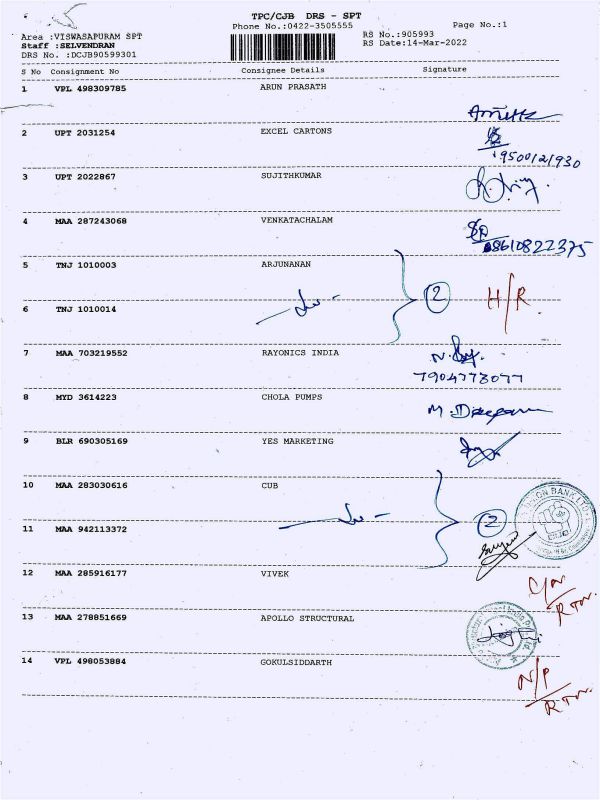 TPC/CJB DRS - SPT
Phone No.:0422-3505555
Page No.:1
Area :VISWASAPURAM SPT
RS No.:905993
Staff :SELVENDRAN
RS Date:14-Mar-2022
DRS No. :DCJB90599301
S No Consignment No Consignee Details Signature
1 VPL 498309785 ARUN PRASATH
2 UPT 2031254 EXCEL CARTONS
9500121930
3 UPT 2022867 SUJITHKUMAR
4 MAA 287243068 VENKATACHALAM
8610822375
5 TNJ 1010003 ARJUNANAN
2 H/R
6 TNJ 1010014
7 MAA 703219552 RAYONICS INDIA
7904773077
8 MYD 3614223 CHOLA PUMPS
9 BLR 690305169 YES MARKETING
10 MAA 283030616 CUB
2
11 MAA 942113372
12 MAA 285916177 VIVEK
13 MAA 278851669 APOLLO STRUCTURAL
14 VPL 498053884 GOKULSIDDARTH
N/P